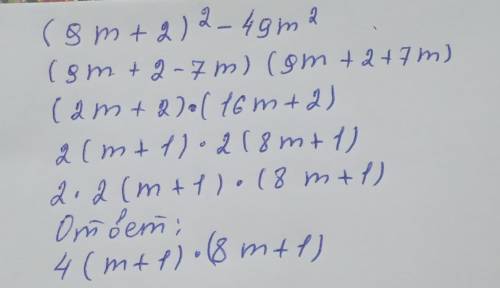 (9m + 2)² - 49m²
(9m + 2 - 7m) (9m + 2 + 7m)
(2m + 2)•(16m + 2)
2(m + 1) · 2(8m + 1)
2 · 2(m + 1) · (8m + 1)
Ответ:
4(m+1)·(8m+1)